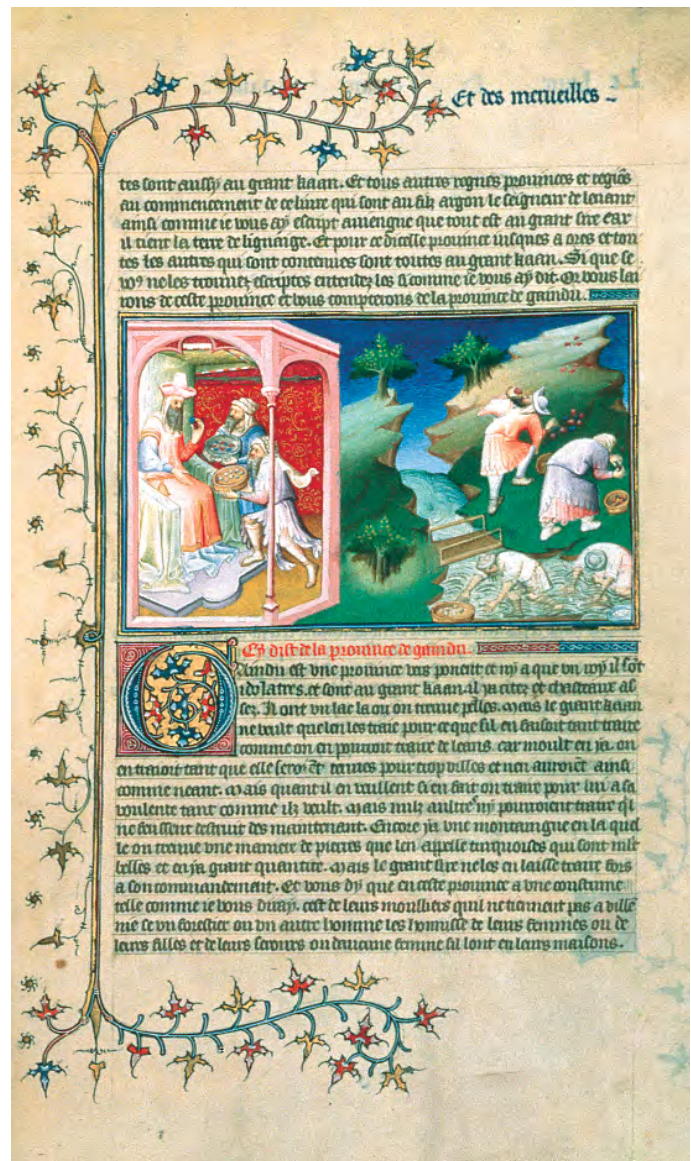 Et des merueilles
tes sont aussy au grant kaan. Et tous autres regnes prouinces et regiõs
au commencement de ce liure qui sont au filz argon le seigneur de leuant
ainsi comme ie vous ay escript amengne que tout est au grant sire car
il tient la terre de lignaige. Et pour ce dicelle prouince iusques a ores et tou
tes les autres qui sont contenues sont toutes au grant kaan. Si que se
vo9 ne les trouuez escriptes entendez les si comme ie vous ay dit. Or vous lai
rons de ceste prouince et vous compterons de la prouince de gaindu.
Cy dist de la prouince de gaindu.
Gaindu est vne prouince vers ponent ce ny a que vn roy il sõt
idolatres. et sont au grant kaan. il ya citez et chasteaux as
sez. Il ont vn lac la ou on treuue pelles. mais le grant kaan
ne veult que len les traie pour ce que sil en faisoit tant traire
comme on en pourroit traire de leans. car moult en ya. on
en trairoit tant que elle tenues pour trop villes et nen auroiẽt ainsi
comme neant. mais quant il en veullent si en fait on traire pour lui a sa
voulente tant comme il veult. mais nulz aultre ny pourroient traire qi
ne feussent destruit des maintenant. Encore ya vne montaingne en la quel
le on treuue vne maniere de pierres que len appelle turquoises qui sont mlt
belles et en ya grant quantite. mais le grant sire ne les en laisse traire fors
a son commandement. Et vous dy que en ceste prouince a vne coustume
telle comme ie vous diray. cest de leurs moulliers quil ne tiennent pas a villẽ
nie se vn forestier ou vn autre homme les honnisse de leurs femmes ou de
leurs filles et de leurs serours ou daucune femme sil lont en leurs maisons.